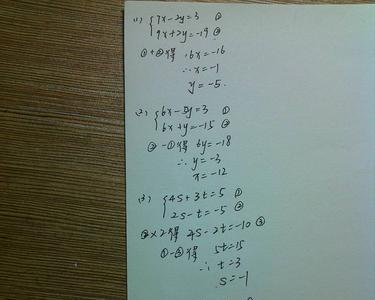 (1) { 7x-2y=3 ①
9x+2y=-19 ②
①+②得 16x=-16
∴x=-1
y=-5.
(2) { 6x-5y=3 ①
6x+y=-15 ②
②-①得 6y=-18
∴y=-3
x=-12
(3) { 4s+3t=5 ①
2s-t=-5 ②
②×2得 4s-2t=-10 ③
①-③得 5t=15
∴t=3
s=-1